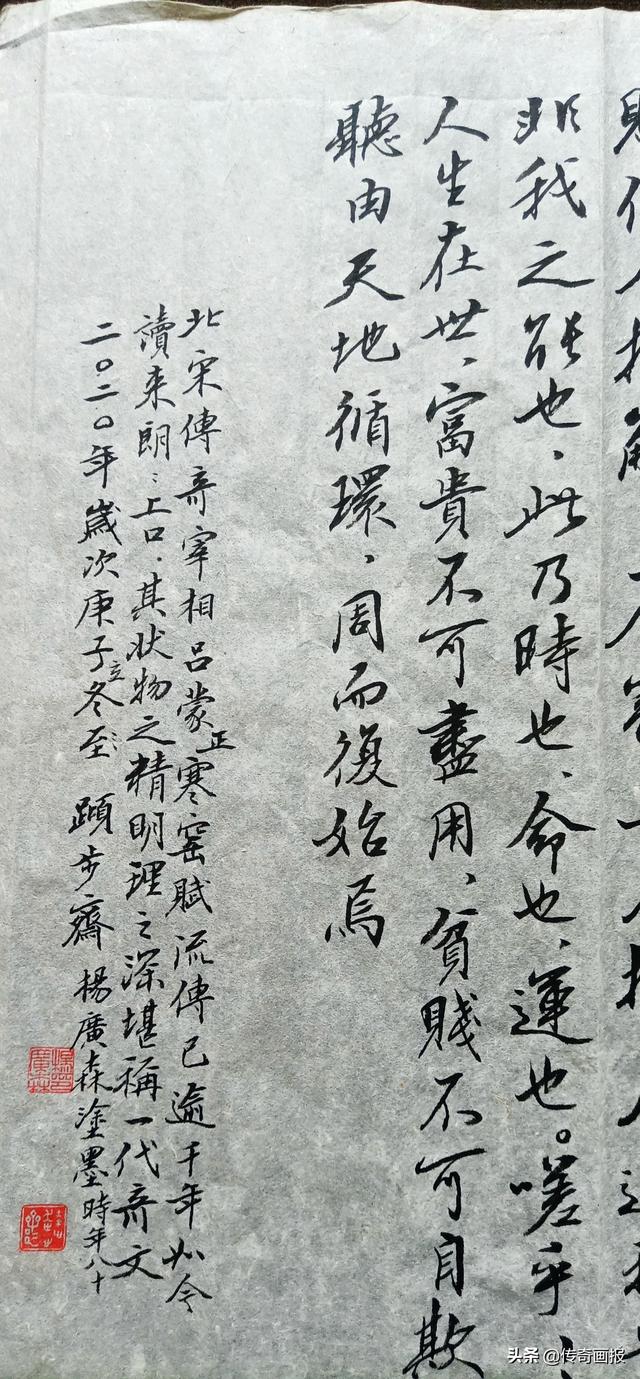 非我之能也、此乃時也、命也、運也。嗟乎、
人生在世、富貴不可盡用、貧賤不可自欺
聽由天地循環、周而復始焉
北宋傳奇宰相呂蒙正寒窑賦流傳已逾千年如今
讀來朗〻上口、其狀物之精明理之深堪稱一代奇文
二〇二〇年歲次庚子立冬至 蹞步齋楊廣森塗墨時年八十
頭条 @传奇画报